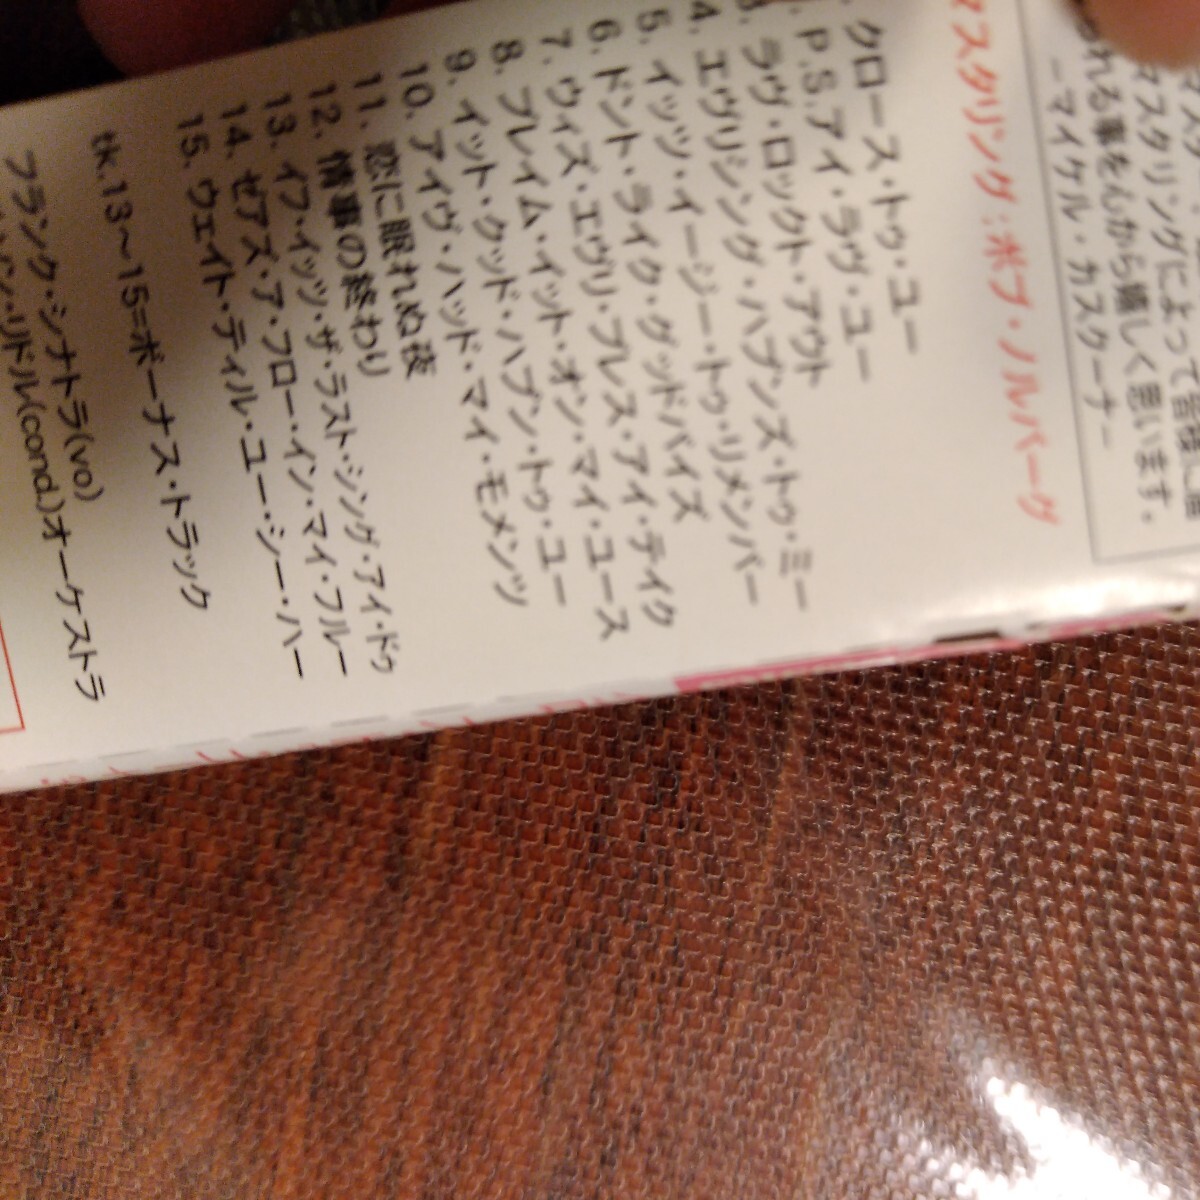 マスタリングによって皆様に届
られる事を心から嬉しく思います。
−マイケル・カスクーナ−
マスタリング:ボブ・ノルバーグ
クロース・トゥ・ユー
P.S.アイ・ラヴ・ユー
3. ラヴ・ロックト・アウト
4. エヴリシング・ハプンズ・トゥ・ミー
5. イッツ・イージー・トゥ・リメンバー
6. ドント・ライク・グッドバイズ
7. ウィズ・エヴリ・ブレス・アイ・テイク
8. ブレイム・イット・オン・マイ・ユース
9. イット・クッド・ハプン・トゥ・ユー
10. アイヴ・ハッド・マイ・モメンツ
11. 恋に眠れぬ夜
12. 情事の終わり
13. イフ・イッツ・ザ・ラスト・シング・アイ・ドゥ
14. ゼアズ・ア・フロー・イン・マイ・フルー
15. ウェイト・ティル・ユー・シー・ハー
tk.13〜15=ボーナス・トラック
フランク・シナトラ(vo)
リドル(cond.)オーケストラ